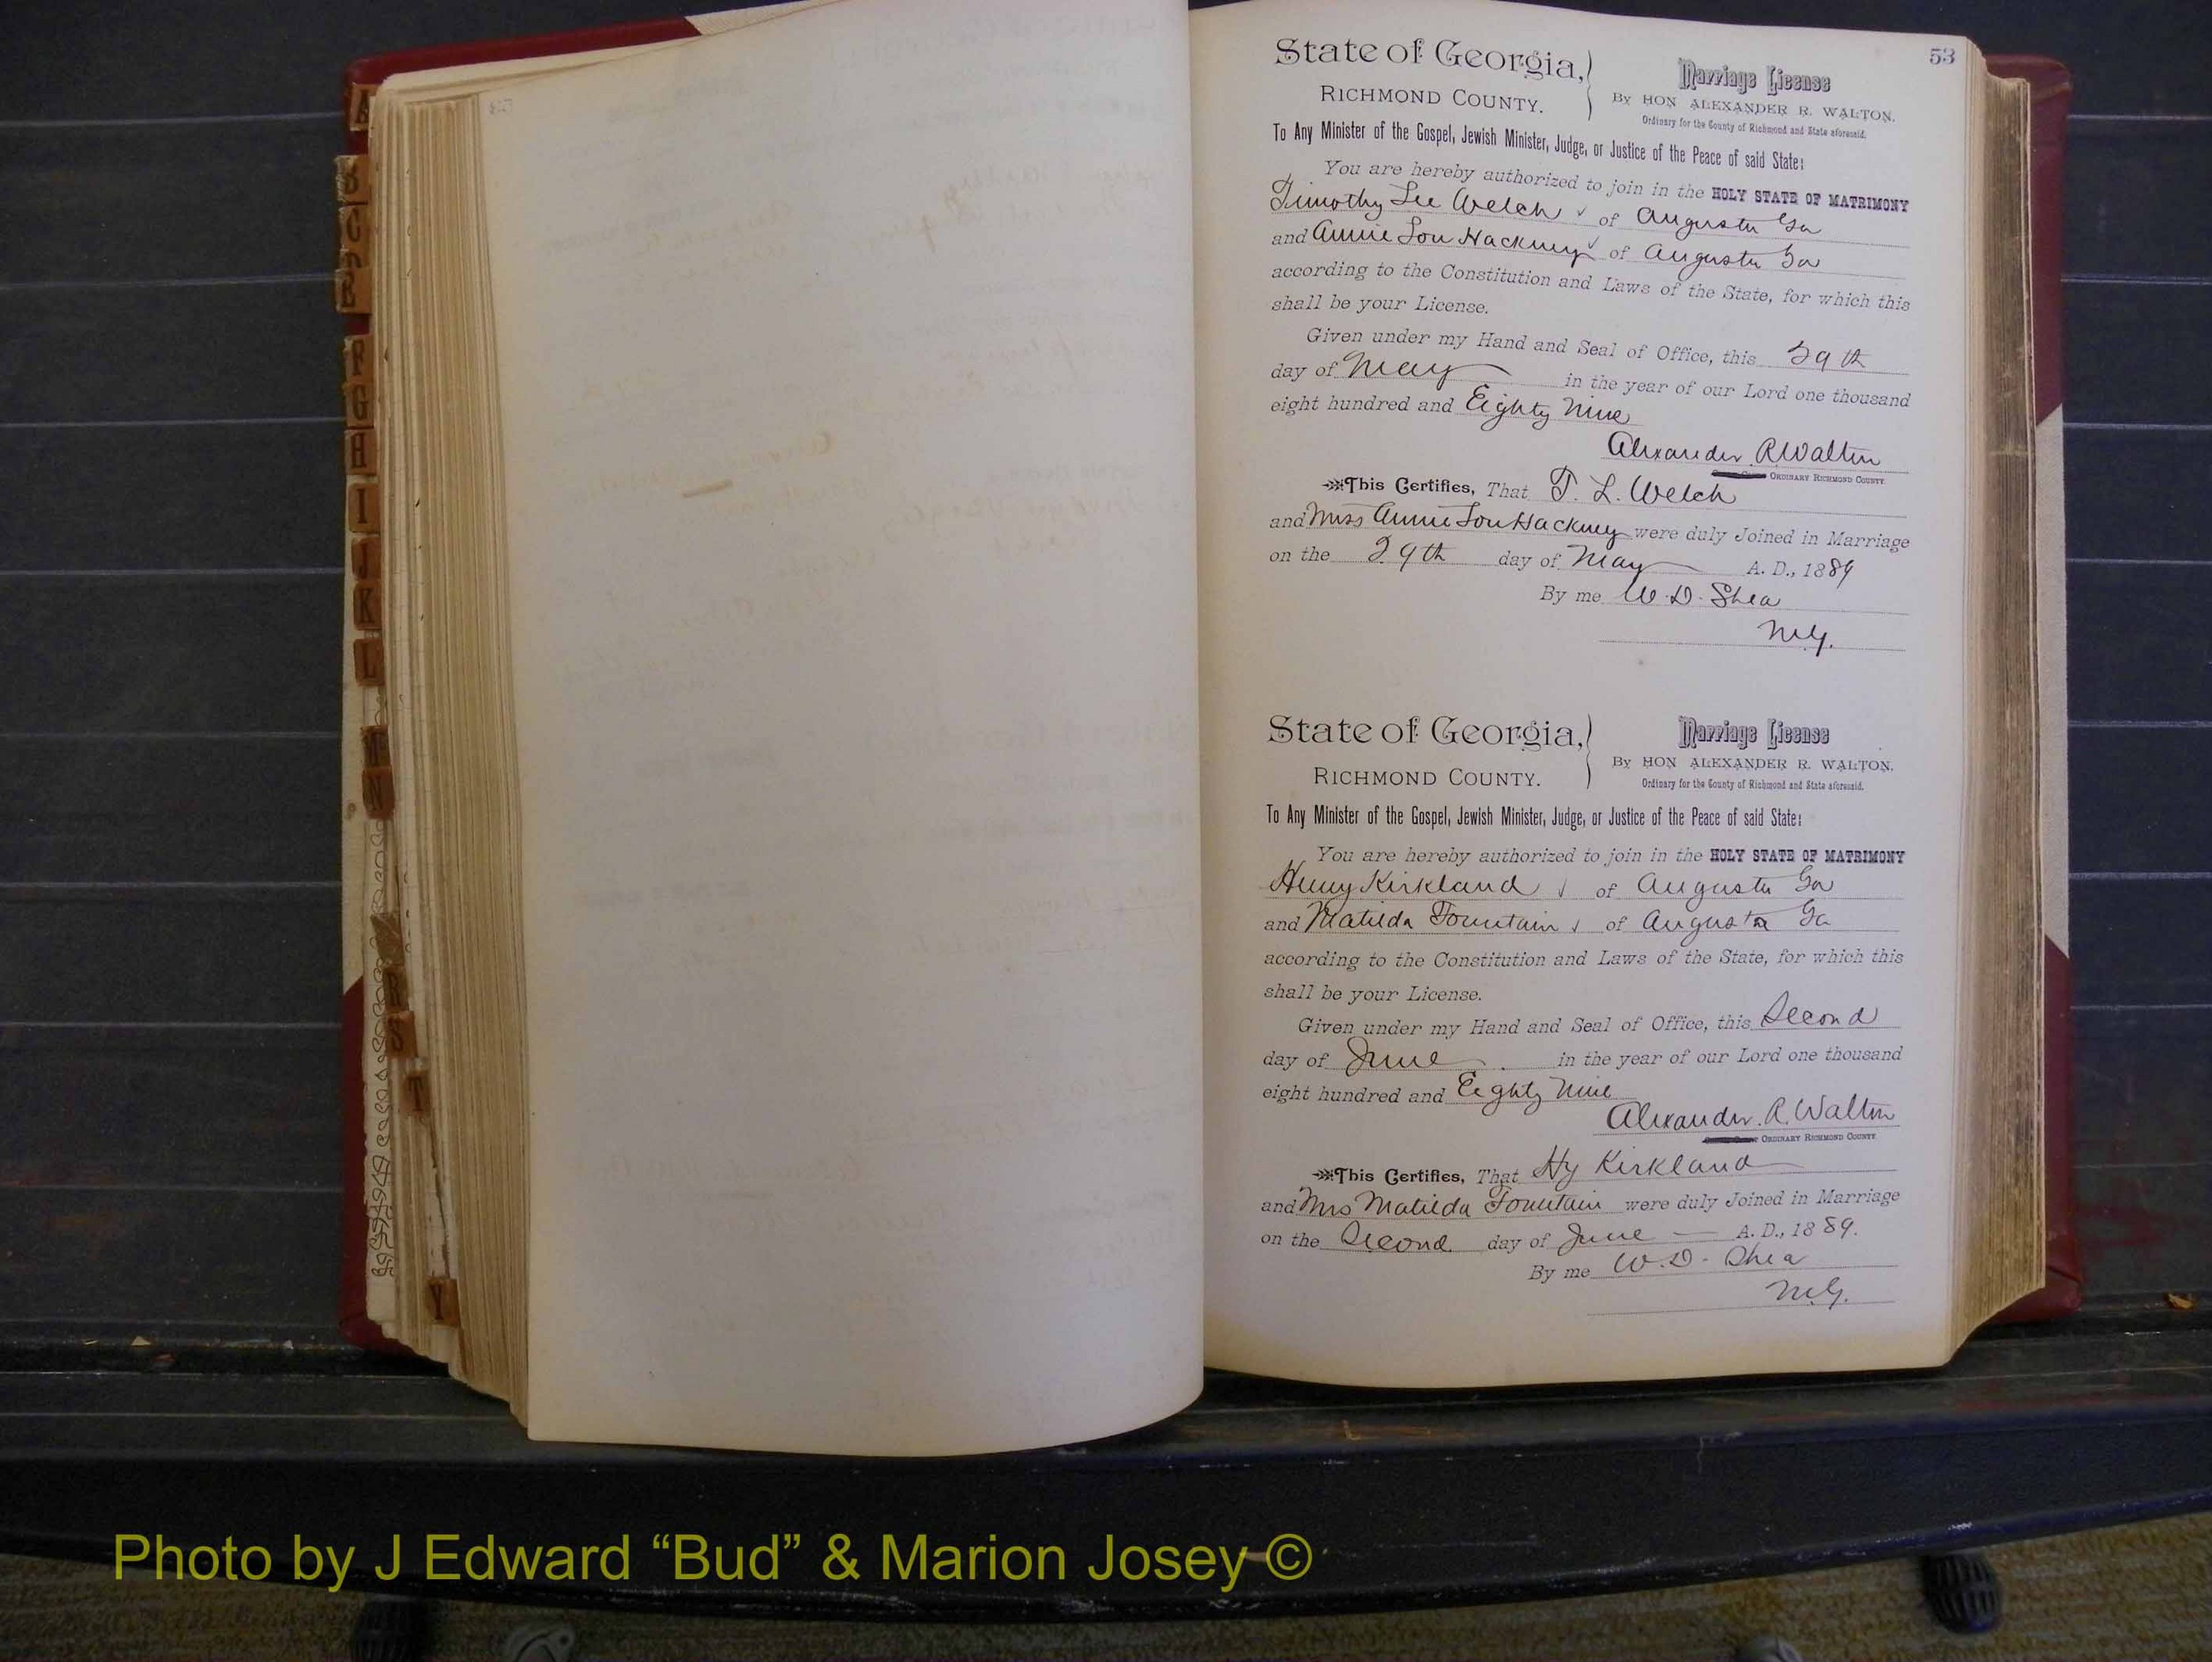 53
State of Georgia,
RICHMOND COUNTY.
Marriage License
By HON ALEXANDER R. WALTON.
Ordinary for the County of Richmond and State aforesaid.
To Any Minister of the Gospel, Jewish Minister, Judge, or Justice of the Peace of said State:
You are hereby authorized to join in the HOLY STATE OF MATRIMONY
Timothy Lee Welch ✓ of Augusta Ga
and Annie Lou Hackney ✓ of Augusta Ga
according to the Constitution and Laws of the State, for which this
shall be your License.
Given under my Hand and Seal of Office, this 29th
day of May in the year of our Lord one thousand
eight hundred and Eighty Nine
Alexander R. Walton
ORDINARY RICHMOND COUNTY.
This Certifies, That T. L. Welch
and Miss Annie Lou Hackney were duly Joined in Marriage
on the 29th day of May A. D., 1889
By me W. D. Shea
M.G.
State of Georgia,
RICHMOND COUNTY.
Marriage License
By HON ALEXANDER R. WALTON.
Ordinary for the County of Richmond and State aforesaid.
To Any Minister of the Gospel, Jewish Minister, Judge, or Justice of the Peace of said State:
You are hereby authorized to join in the HOLY STATE OF MATRIMONY
Henry Kirkland ✓ of Augusta Ga
and Matilda Fountain ✓ of Augusta Ga
according to the Constitution and Laws of the State, for which this
shall be your License.
Given under my Hand and Seal of Office, this Second
day of June in the year of our Lord one thousand
eight hundred and Eighty Nine
Alexander. R. Walton
ORDINARY RICHMOND COUNTY
This Certifies, That Hy Kirkland
and Mrs Matilda Fountain were duly Joined in Marriage
on the Second day of June — A. D., 1889.
By me W. D. Shea
M.G.
A
B
C
F
G
H
I
J
K
L
M
N
R
S
T
Y
Photo by J Edward “Bud” & Marion Josey ©